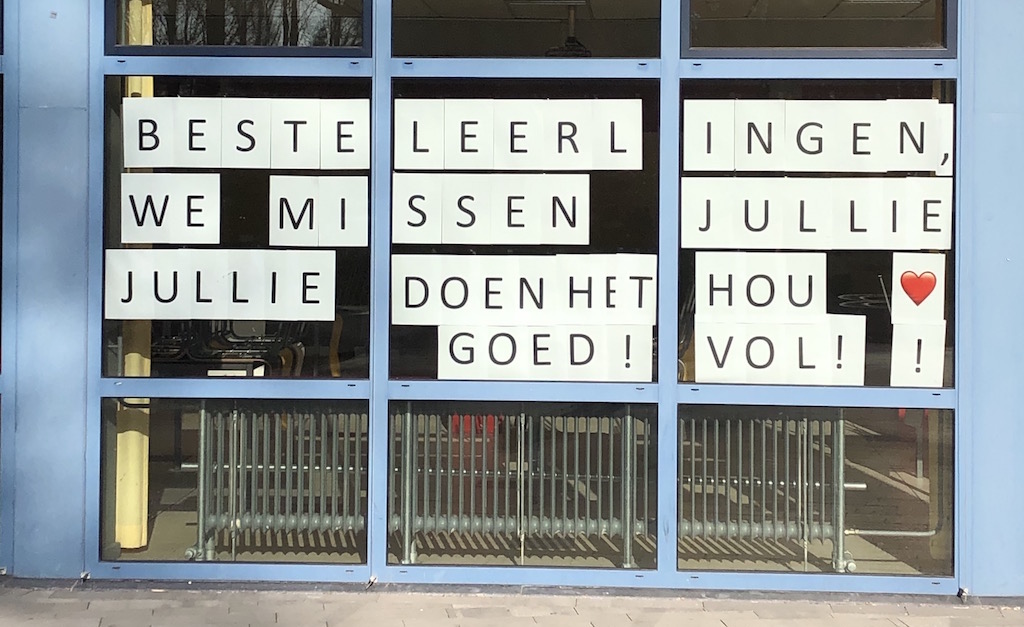 BESTE LEERLINGEN,
WE MISSEN JULLIE
JULLIE DOEN HET HOU ❤️
GOED! VOL! !